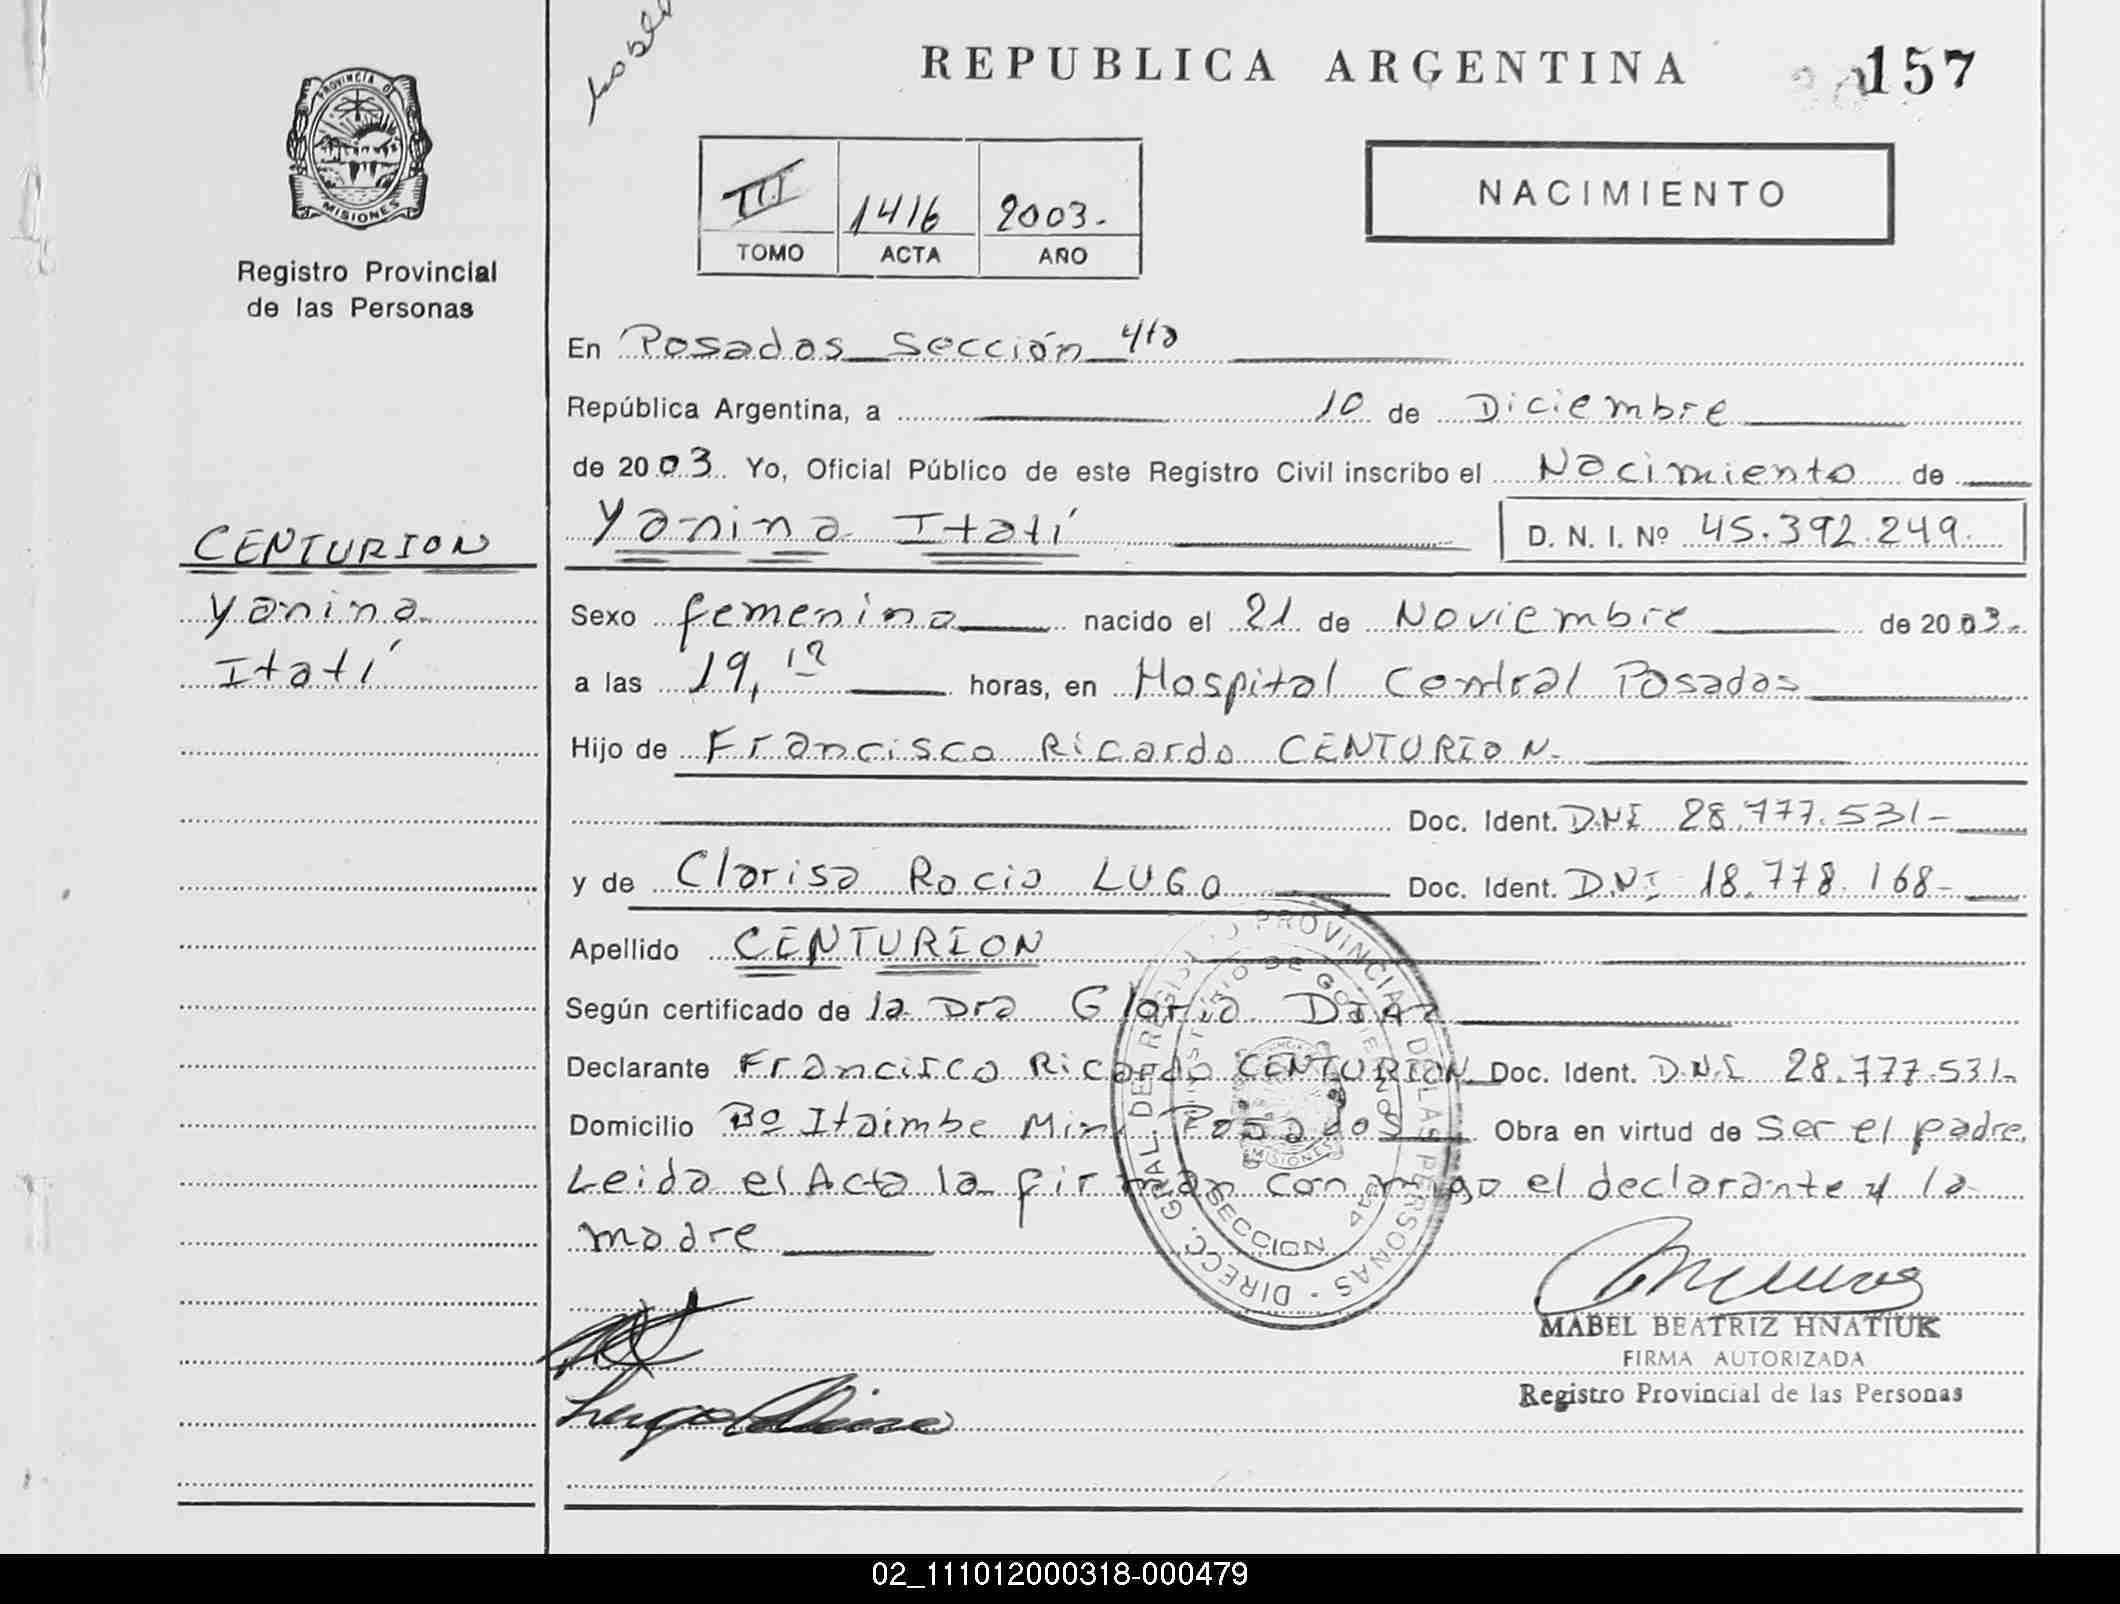 REPUBLICA ARGENTINA 157
PROVINCIA D
MISIONES
Registro Provincial
de las Personas
III 1416 2003.-
TOMO ACTA AÑO
NACIMIENTO
En Posadas Sección 4ta
República Argentina, a 10 de Diciembre
de 2003. Yo, Oficial Público de este Registro Civil inscribo el Nacimiento de
Yanina Itatí D. N. I. Nº 45.392.249.
CENTURION
Yanina
Itatí
Sexo femenino nacido el 21 de Noviembre de 2003.-
a las 19,12 horas, en Hospital Central Posadas
Hijo de Francisco Ricardo CENTURION.-
Doc. Ident. DNI 28.777.531-
y de Clarisa Rocio LUGO Doc. Ident. DNI 18.778.168-
Apellido CENTURION
Según certificado de la Dra Gloria DIAZ
Declarante Francisco Ricardo CENTURION Doc. Ident. DNI 28.777.531-
Domicilio Bº Itaimbe Mini Posadas Obra en virtud de Ser el padre.
Leida el Acta la firman conmigo el declarante y la
madre
DIRECC. GRAL. DEL REGISTRO PROVINCIAL DE LAS PERSONAS -
MINISTERIO DE GOBIERNO
MISIONES
SECCION 4ta
MABEL BEATRIZ HNATIUK
FIRMA AUTORIZADA
Registro Provincial de las Personas
02_111012000318-000479